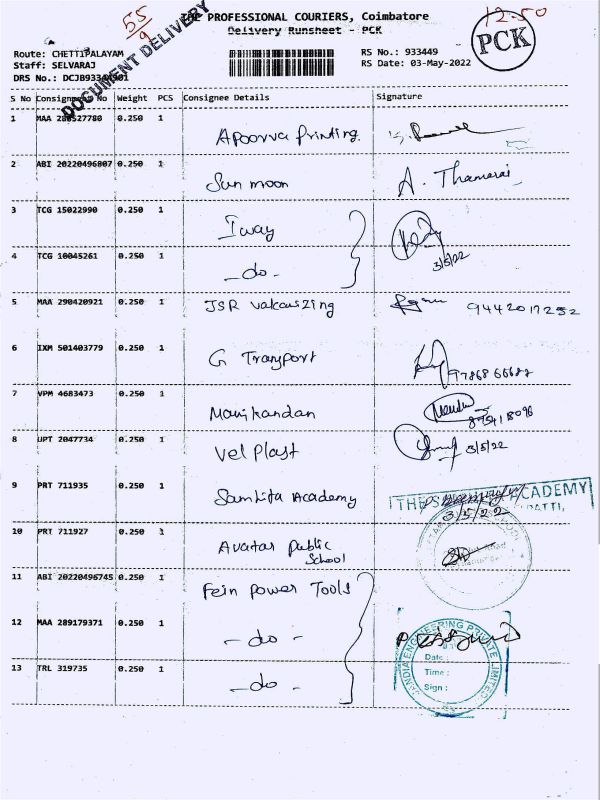 55
9
12.50
THE PROFESSIONAL COURIERS, Coimbatore
Delivery Runsheet - PCK
DOCUMENT DELIVERY
PCK
Route: CHETTIPALAYAM
Staff: SELVARAJ
RS No.: 933449
RS Date: 03-May-2022
S No Consignment No Weight PCS Consignee Details Signature
1 0.250 1 Apoorva Printing
2 ABI 20220496807 0.250 1 Sun moon A. Thamarai
3 TCG 15022990 0.250 1 Iway
4 TCG 10045261 0.250 1 - do - 3/5/22
5 MAA 290420921 0.250 1 JSR 9442017252
6 IXM 501403779 0.250 1 G Transport
7 VPM 4683473 0.250 1 Manikandan
8 UPT 2047734 0.250 1 Vel Plast 3/5/22
9 PRT 711935 0.250 1 Samhita Academy ACADEMY
3/5/22
10 PRT 711927 0.250 1 Avatar Public
School
11 ABI 20220496745 0.250 1 Fein Power Tools
12 MAA 289179371 0.250 1 - do -
13 TRL 319735 0.250 1 - do -
ENGINEERING PRIVATE LIMITED
Date :
Time :
Sign :